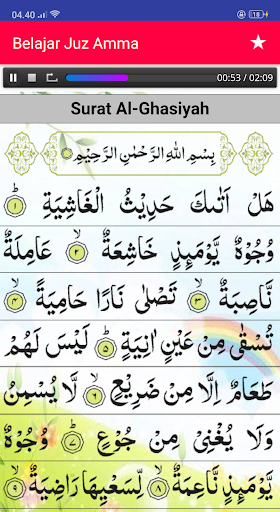 04.40
Belajar Juz Amma
00:53 / 02:09
Surat Al-Ghasiyah
بِسْمِ اللهِ الرَّحْمٰنِ الرَّحِيْمِ
هَلْ اَتٰىكَ حَدِيْثُ الْغَاشِيَةِ ۗ ١
وُجُوْهٌ يَّوْمَىِٕذٍ خَاشِعَةٌ ۙ ٢ عَامِلَةٌ
نَّاصِبَةٌ ۙ ٣ تَصْلٰى نَارًا حَامِيَةً ۙ ٤
تُسْقٰى مِنْ عَيْنٍ اٰنِيَةٍ ۗ ٥ لَيْسَ لَهُمْ
طَعَامٌ اِلَّا مِنْ ضَرِيْعٍ ۙ ٦ لَّا يُسْمِنُ
وَلَا يُغْنِيْ مِنْ جُوْعٍ ۗ ٧ وُجُوْهٌ
يَّوْمَىِٕذٍ نَّاعِمَةٌ ۙ ٨ لِّسَعْيِهَا رَاضِيَةٌ ۙ ٩